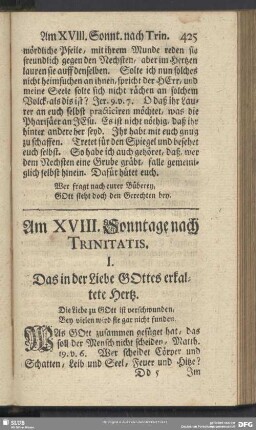 Am XVIII. Sonnt. nach Trin. 425
mördliche Pfeile, mit ihrem Munde reden sie
freundlich gegen den Nechsten, aber im Hertzen
lauren sie auff denselben. Solte ich nun solches
nicht heimsuchen an ihnen, spricht der HErr, und
meine Seele solte sich nicht rächen an solchem
Volck, als dis ist? Jer. 9. v. 7. O daß ihr Lau-
rer an euch selbst practiciren möchtet, was die
Pharisäer an JEsu. Es ist nicht nöthig, daß ihr
hinter andere her seyd. Jhr habt mit euch gnug
zu schaffen. Tretet für den Spiegel und besehet
euch selbst. So habe ich auch gehöret, daß, wer
dem Nechsten eine Grube gräbt, falle gemei-
niglich selbst hinein. Dafür hütet euch.
Wer fragt nach eurer Büberey,
GOtt steht doch den Gerechten bey.
Am XVIII. Sonntage nach
TRINITATIS.
I.
Das in der Liebe GOttes erkal-
tete Hertz.
Die Liebe zu GOtt ist verschwunden,
Bey vielen wird sie gar nicht funden.
WAs GOtt zusammen gefüget hat, das
soll der Mensch nicht scheiden, Matth.
19. v. 6. Wer scheidet Cörper und
Schatten, Leib und Seel, Feuer und Hitze?
Dd 5 Im
SLUB
DFG